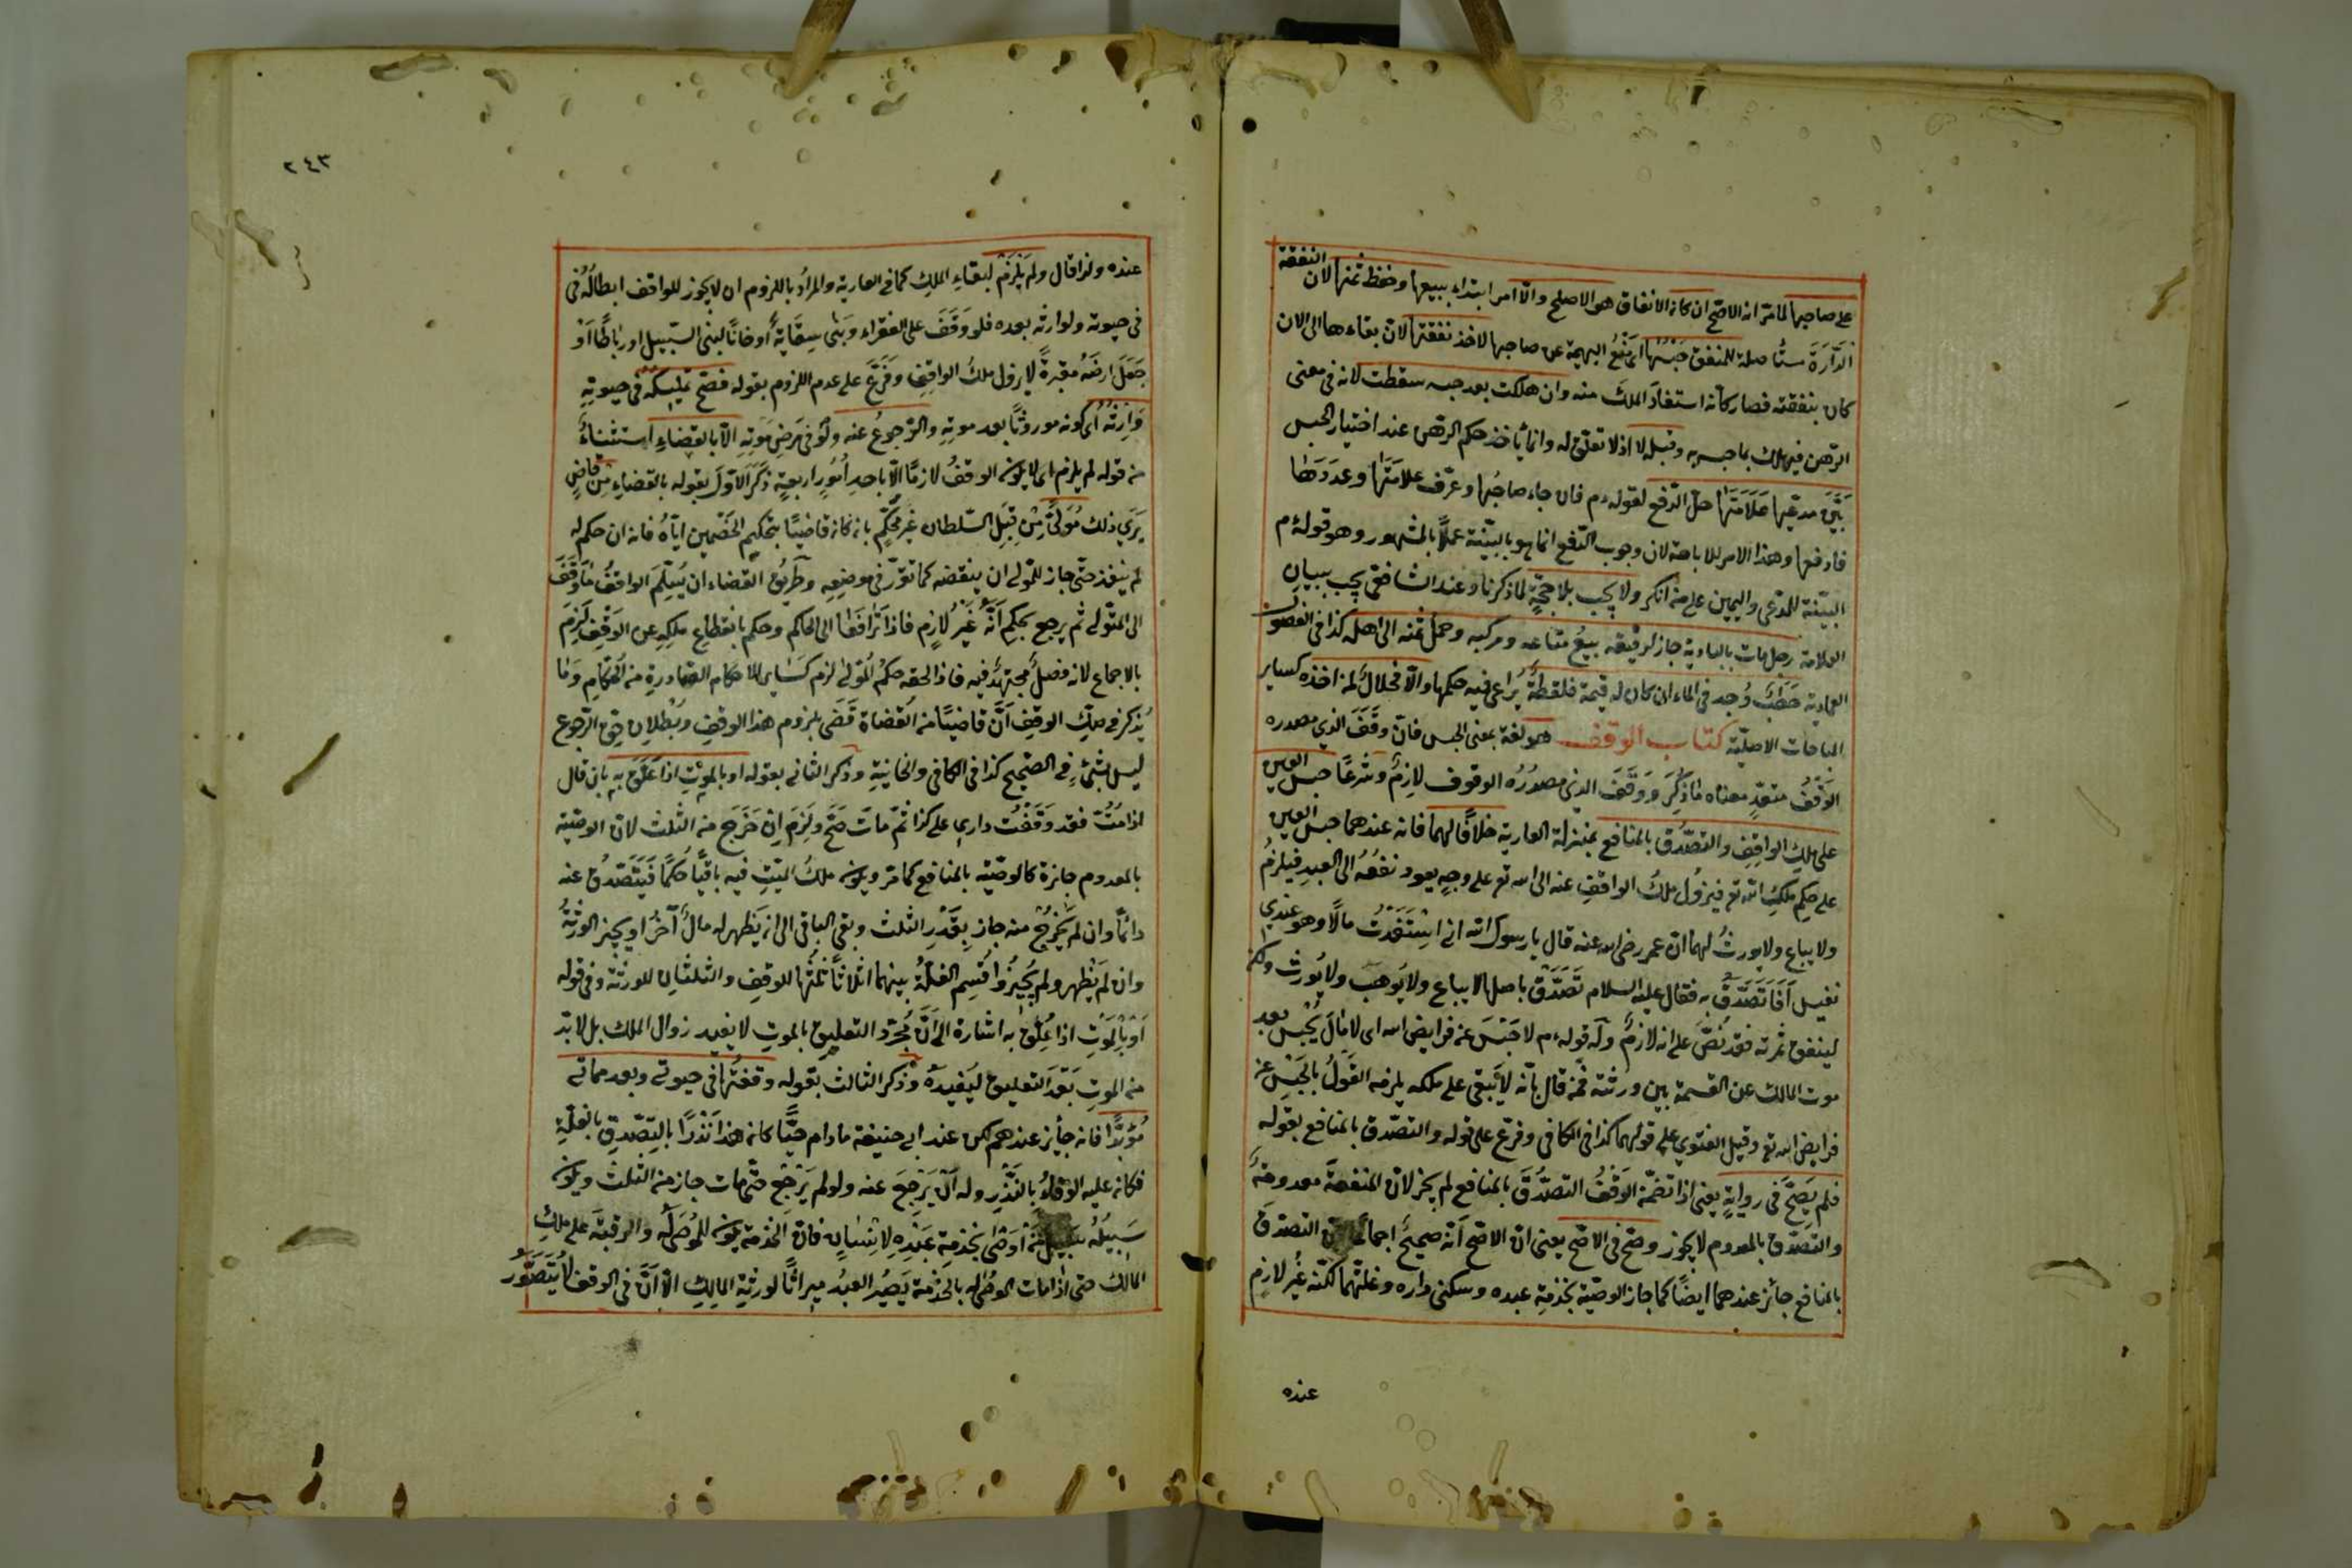 النفقة
على صاحبها لما مر انه الاصح ان كان الانفاق هو الاصلح والّا امر ابتداء ببيعها وحفظ ثمنها لان
الدّارّة مستأصلة للمنفق حبسها اى منع البهيمة عن صاحبها لاخذ نفقتها لان بقاءها الى الان
كان بنفقته فصار كانه استفاد الملك منه وان هلكت بعد حبسه سقطت لانه فى معنى
الرّهن فيهلك بما حبس به وقبله لا اذ لا تعلّق له وانما ياخذ حكم الرهن عند اختيار الحبس
بَيَّنَ مدعيها عَلَامَتَهَا حلّ الدّفع لقوله م فان جاء صاحبُها وعرّف علامَتَها وعدَدَها
فادفعها وهذا الامر للاباحة لان وجوب الدّفع انما هو بالبيّنة عملًا بالمشهور وهو قولهُ م
البيّنة للمدّعى واليمين على من انكر ولا يجب بلا حجّةٍ لما ذكرنا وعند الشافعى يجب ببيان
العلامة رجل مات بالبادية جاز لرفيقه بيعُ متاعه ومركبه وحملُ ثمنه الى اهله كذا فى الفصول
العمادية حَطَبٌ وُجد فى الماء ان كان له قيمة فلقطةٌ يُراعى فيه حكمها والّا فحلالٌ لمن اخذه كسائر
المباحات الاصليّة كتاب الوقف هو لغة بمعنى الحبس فانّ وقَفَ الذى مصدره
الوَقْفُ متعدّ معناه ما ذُكِرَ وَوَقَفَ الذى مصدرُه الوقوف لازمٌ وشرعًا حبس العين
على ملك الواقِفِ والتصدّق بالمنافع بمنزلة العارية خلافًا لهما فانه عندهما حبس العين
على حكم ملكِ الله تع فيزولُ ملكُ الواقفِ عنه الى الله تع على وجهٍ يعود نفعُهُ الى العبدِ فيلزمُ
ولا يباع ولا يورثُ لهما انّ عمر رضى الله عنه قال يا رسول الله انى استَفَدْتُ مالًا وهو عندى
نفيس اَفَاَتَصَدَّقُ به فقال عليه السلام تَصَدَّقْ باصلها لا يباع ولا يُوهب ولا يُورث ولكن
لينفق ثمرته فقد نُصَّ على انه لازمٌ وله قوله م لا حَبْسَ عن فرايض الله اى لا مالَ يُحْبس بعد
موت المالك عن القسمة بين ورثته فمن قال بانّه لا يبقى على ملكه يلزمه القولُ بالحبس عن
فرايض الله تع وقيل الفتوى على قولهما كذا فى الكافى وفرّع على قوله والتصدّق بالمنافع بقوله
فلم يَصِحَّ فى روايةٍ يعنى اذا تضمّن الوقفُ التصدُّقَ بالمنافع لم يجز لانّ المنفعة معدومةٌ
والتصدّق بالمعدوم لا يجوز وصحّ فى الاصحّ يعنى انّ الاصحّ انّه صحيحٌ اجماعًا لانّ التصدق
بالمنافع جائز عندهما ايضًا كما جاز الوصيّة بخدمة عبده وسكنى داره وغلّتهما لكنّه غيرُ لازمٍ
عنده
٢٤٣
عنده ولذا قال ولم يَلْزَمْ لبقاءِ الملكِ كما فى العارية والمرادُ باللزوم ان لا يجوز للواقف ابطالُهُ فى
فى حيوته ولوارثه بعده فلو وَقَفَ على الفقراء وبَنٰى سِقَايةً اوخانًا لبنى السّبيل اورباطًا اَوْ
جَعَلَ ارضَهُ مقبرةً لا يزول ملكُ الواقِفِ وفَرَّعَ على عدم اللزوم بقوله فصحّ تمليكه فى حيوتِهِ
وَاِرثُهُ اى كونه موروثًا بعد موتِهِ والرّجوعُ عنه ولو فى مرضِ مَوتِهِ الّا بالقضاءِ استثناءٌ
من قوله لم يلزم اى لا يكون الوقفُ لازمًا الّا باحدِ اُمُورٍ اربعةٍ ذَكَرَ الاوّلَ بقوله بالقضاءِ مِنْ قاضٍ
يَرَى ذلك مُوَلًّى مِنْ قِبَلِ السّلطان غير محكَّمٍ بان كان قاضيًا بتحكيم الخَصْمين ايّاهُ فانه ان حكم له
لم ينفذ حتّى جاز للمولى ان ينقضه كما تقرّر فى موضِعِهِ وطريقُ القضاء ان يُسَلِّمَ الواقفُ ما وَقَفَ
الى المتولى ثم يرجع بحكم اَنَّهُ غيرُ لازِمٍ فاذا تَرَافَعَا الى الحاكم وحكم بانقطاعِ ملكِهِ عن الوقفِ لَزِمَ
بالاجماع لانه فصلٌ مجتهدٌ فيه فاذا لحقه حكمُ المُوَلّٰى لزم كسَائر الاحكام الصّادرةِ من الحُكّامِ وَما
يُذكر فى صكّ الوقفِ اَنّ قاضيًا من القضاة قَضَى بلزوم هذا الوقفِ وبُطْلانِ حقِّ الرجوع
ليس بشئٍ فى الصّحيح كذا فى الكافى والخانيةِ وذكر الثانى بقوله اوبالموتِ اذا عَلَّقَ بِهِ بان قال
اذا مُتُّ فقد وَقَفْتُ دارى على كذا ثمّ مات صَحَّ ولَزِمَ اِنْ خَرَجَ من الثلث لانّ الوصيّة
بالمعدوم جائزة كالوصيّة بالمنافع كما مرّ ويكون ملكُ الميّتِ فيه باقيًا حُكمًا فَيَتَصَدقُ عنه
دائمًا وان لم يَخْرُجْ منه جاز بِقَدْرِ الثلث وبقى الباقى الى ان يَظهر له مالٌ آخَرُ او يجيز الورثةُ
وان لم يَظْهر ولم يُجيزُوا قُسِم الغلّةُ بينهما اثلاثًا ثُلُثُها للوقفِ والثلثانِ للورثة وفى قوله
اَوْبِالمَوْتِ اذا عُلِّقَ به اشارة الى اَنَّ مُجرّد التعليقِ بالموتِ لا يفيد زوال الملك بل لا بدّ
من الموتِ بَعْدَ التعليق لِيُفِيدَهُ وذكر الثالث بقوله وقفتُها فى حيوتى وبعد مماتى
مُؤبدًا فانه جائز عندهم لكن عند ابى حنيفة مادام حيًّا كان هذا نَذْرًا بالتّصدقِ بالغلّةِ
فكان عليه الوَفاءُ بالنَّذْرِ وله اَنْ يَرْجِعَ عنه ولو لم يَرْجِعْ حتّى مات جاز من الثلث ويكون
سَبيلُه سبيلَ مَنْ اَوْصٰى بخدمةِ عَبْدِهِ لاِنْسٰانٍ فانّ الخدمةَ يكون للمُوصَى له والرقبةَ على ملكِ
المالك حتى اذا مات الموصى له بالخدمة يَصِيرُ العبدُ ميراثًا لورثةِ المالِكِ الّا اَنَّ فى الوقف لا يُتَصَوَّر